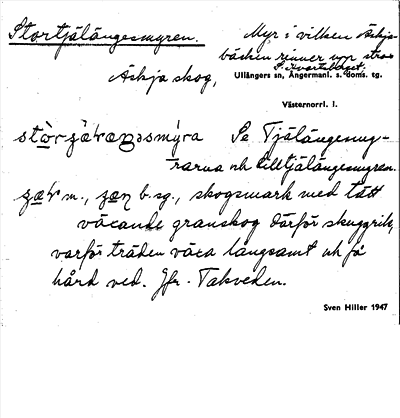 Stortjälängesmyren.
Myr i vilken Äskja-
bäcken rinner upp
Äskja skog,
Ullångers sn, Ångermanl. s. doms. tg.
Västernorrl. l.
Se Tjälängesmy-
rarna och Lilltjälängesmyren.
m., b. sg., skogsmark med tätt
växande granskog därför skuggrik,
varför träden växa långsamt och få
hård ved. Jfr. Takveden.
Sven Hiller 1947